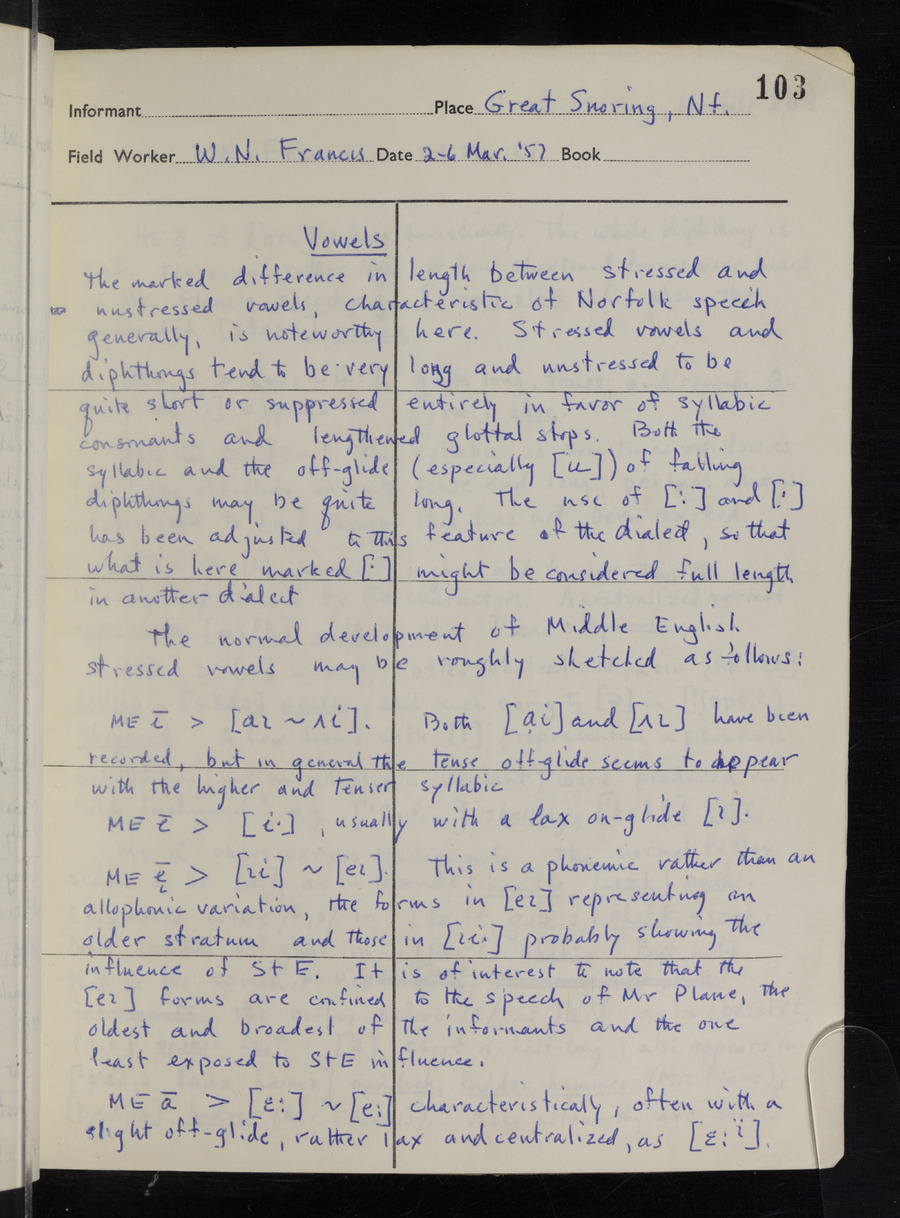 103
Informant Place Great Snoring, Nf.
Field Worker W.N. Francis Date 2-6 Mar. '57 Book
Vowels
The marked difference in length between stressed and
unstressed vowels, characteristic of Norfolk speech
generally, is noteworthy here. Stressed vowels and
diphthongs tend to be very long and unstressed to be
quite short or suppressed entirely in favor of syllabic
consonants and lengthened glottal stops. Both the
syllabic and the off-glide (especially [ɩ]) of falling
diphthongs may be quite long. The use of [:] and [·]
has been adjusted to this feature of the dialect, so that
what is here marked [·] might be considered full length
in another dialect
The normal development of Middle English
stressed vowels may be roughly sketched as follows:
ME ī > [aɩ ~ ʌi]. Both [ai] and [ʌɩ] have been
recorded, but in general the tense off-glide seems to appear
with the higher and tenser syllabic
ME ẹ̄ > [i·], usually with a lax on-glide [ɩ].
ME ę̄ > [ɩi] ~ [eɩ]. This is a phonemic rather than an
allophonic variation, the forms in [eɩ] representing an
older stratum and those in [ɩi·] probably showing the
influence of StE. It is of interest to note that the
[eɩ] forms are confined to the speech of Mr Plane, the
oldest and broadest of the informants and the one
least exposed to StE influence.
ME ā > [ɛ:] ~ [e:] characteristically, often with a
slight off-glide, rather lax and centralized, as [ɛ:ï].